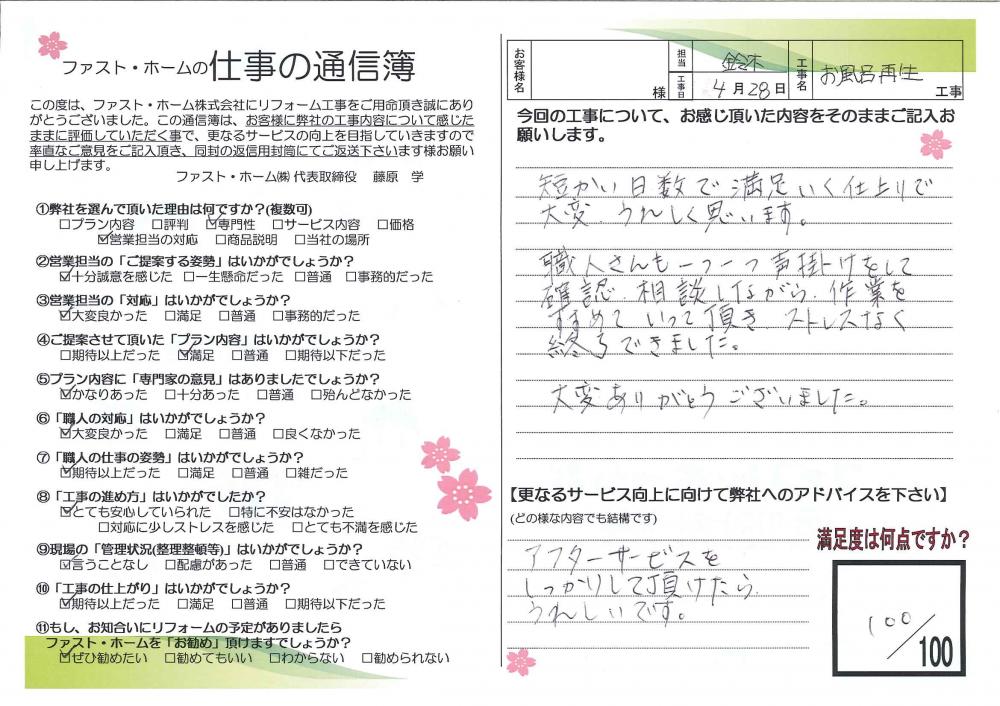 ファスト・ホームの仕事の通信簿
この度は、ファスト・ホーム株式会社にリフォーム工事をご用命頂き誠にあり
がとうございました。この通信簿は、お客様に弊社の工事内容について感じた
ままに評価していただく事で、更なるサービスの向上を目指していきますので
率直なご意見をご記入頂き、同封の返信用封筒にてご返送下さいます様お願い
申し上げます。
ファスト・ホーム㈱ 代表取締役 藤原 学
①弊社を選んで頂いた理由は何ですか?(複数可)
□プラン内容 □評判 ☑専門性 □サービス内容 □価格
☑営業担当の対応 □商品説明 □当社の場所
②営業担当の「ご提案する姿勢」はいかがでしょうか?
☑十分誠意を感じた □一生懸命だった □普通 □事務的だった
③営業担当の「対応」はいかがでしょうか?
☑大変良かった □満足 □普通 □事務的だった
④ご提案させて頂いた「プラン内容」はいかがでしょうか?
□期待以上だった ☑満足 □普通 □期待以下だった
⑤プラン内容に「専門家の意見」はありましたでしょうか?
☑かなりあった □十分あった □普通 □殆んどなかった
⑥「職人の対応」はいかがでしょうか?
☑大変良かった □満足 □普通 □良くなかった
⑦「職人の仕事の姿勢」はいかがでしょうか?
☑期待以上だった □満足 □普通 □雑だった
⑧「工事の進め方」はいかがでしたか?
☑とても安心していられた □特に不安はなかった
□対応に少しストレスを感じた □とても不満を感じた
⑨現場の「管理状況(整理整頓等)」はいかがでしょうか?
☑言うことなし □配慮があった □普通 □できていない
⑩「工事の仕上がり」はいかがでしょうか?
☑期待以上だった □満足 □普通 □期待以下だった
⑪もし、お知合いにリフォームの予定がありましたら
ファスト・ホームを「お勧め」頂けますでしょうか?
☑ぜひ勧めたい □勧めてもいい □わからない □勧められない
お客様名 様 担当 鈴木 工事日 4月28日 工事名 お風呂再生 工事
今回の工事について、お感じ頂いた内容をそのままご記入お
願いします。
短かい日数で満足いく仕上りで
大変、うれしく思います。
職人さんも一つ一つ声掛けをして
確認、相談しながら、作業を
すすめていって頂き、ストレスなく
終了できました。
大変ありがとうございました。
【更なるサービス向上に向けて弊社へのアドバイスを下さい】
(どの様な内容でも結構です)
アフターサービスを
しっかりして頂けたら、
うれしいです。
満足度は何点ですか?
100/100